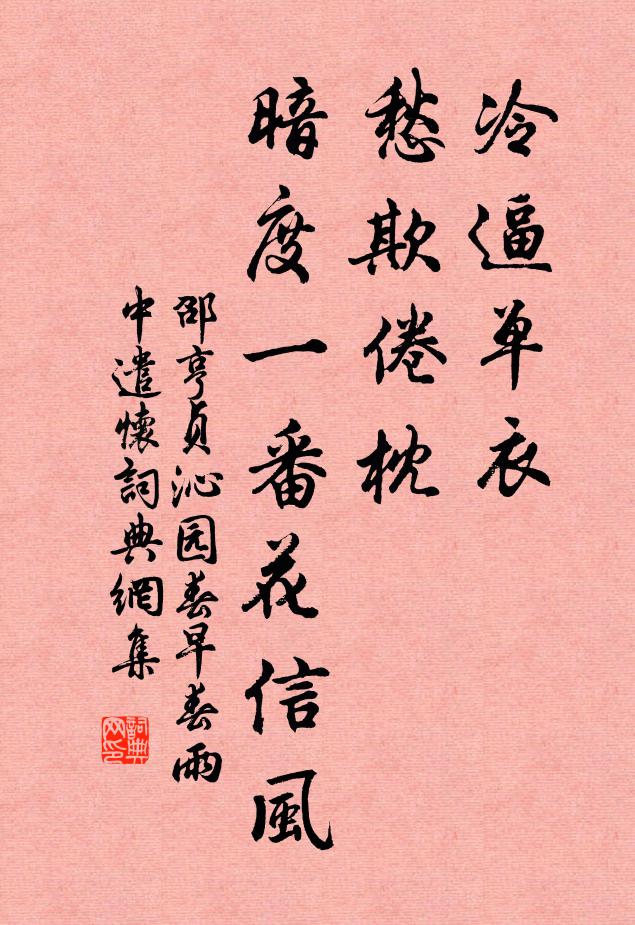 冷逼单衣
愁欺倦枕
暗度一番花信風
邵亨貞沁园春早春雨
中遣懷詞典網集
詞典
网印